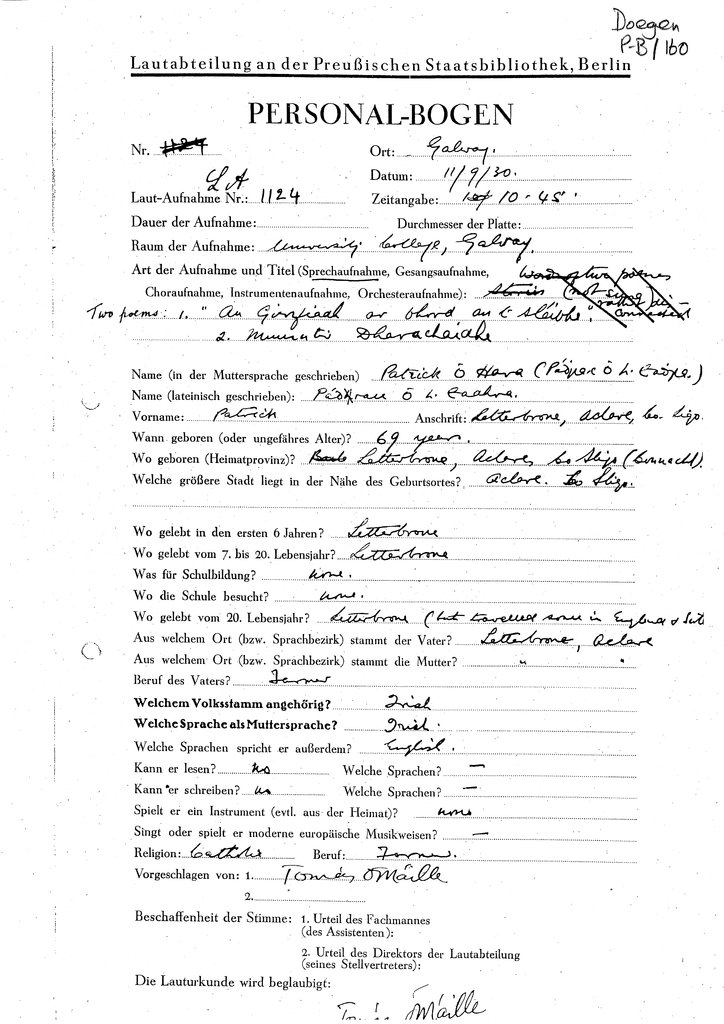 Doegen
P-B/160
Lautabteilung an der Preußischen Staatsbibliothek, Berlin
PERSONAL-BOGEN
Nr. 1124 Ort: Galway.
Datum: 11/9/30.
Laut-Aufnahme Nr.: LA 1124 Zeitangabe: 10-45
Dauer der Aufnahme: Durchmesser der Platte:
Raum der Aufnahme: University College, Galway.
Art der Aufnahme und Titel (Sprechaufnahme, Gesangsaufnahme, two poems
Choraufnahme, Instrumentenaufnahme, Orchesteraufnahme): Stories
Two poems: 1. "An Girrfiadh ar bhord an t sléibhe".
2. Dharacháidhe
Name (in der Muttersprache geschrieben) Patrick Ó Hara
Name (lateinisch geschrieben): Ó h. Eaghra.
Vorname: Patrick Anschrift: Letterbrone, Aclare, Co. Sligo.
Wann geboren (oder ungefähres Alter)? 69 years.
Wo geboren (Heimatprovinz)? Letterbrone, Aclare, Co Sligo (Connacht).
Welche größere Stadt liegt in der Nähe des Geburtsortes? Aclare. Co Sligo.
Wo gelebt in den ersten 6 Jahren? Letterbrone
Wo gelebt vom 7. bis 20. Lebensjahr? Letterbrone
Was für Schulbildung? none.
Wo die Schule besucht? none.
Wo gelebt vom 20. Lebensjahr? Letterbrone (but travelled some in England &
Aus welchem Ort (bzw. Sprachbezirk) stammt der Vater? Letterbrone, Aclare
Aus welchem Ort (bzw. Sprachbezirk) stammt die Mutter? " "
Beruf des Vaters? Farmer
Welchem Volksstamm angehörig? Irish
Welche Sprache als Muttersprache? Irish.
Welche Sprachen spricht er außerdem? English.
Kann er lesen? no Welche Sprachen? —
Kann er schreiben? no Welche Sprachen? —
Spielt er ein Instrument (evtl. aus der Heimat)? none
Singt oder spielt er moderne europäische Musikweisen? —
Religion: Catholic Beruf: Farmer.
Vorgeschlagen von: 1. Tomás Ó Máille
2.
Beschaffenheit der Stimme: 1. Urteil des Fachmannes
(des Assistenten):
2. Urteil des Direktors der Lautabteilung
(seines Stellvertreters):
Die Lauturkunde wird beglaubigt:
Tomás Ó Máille